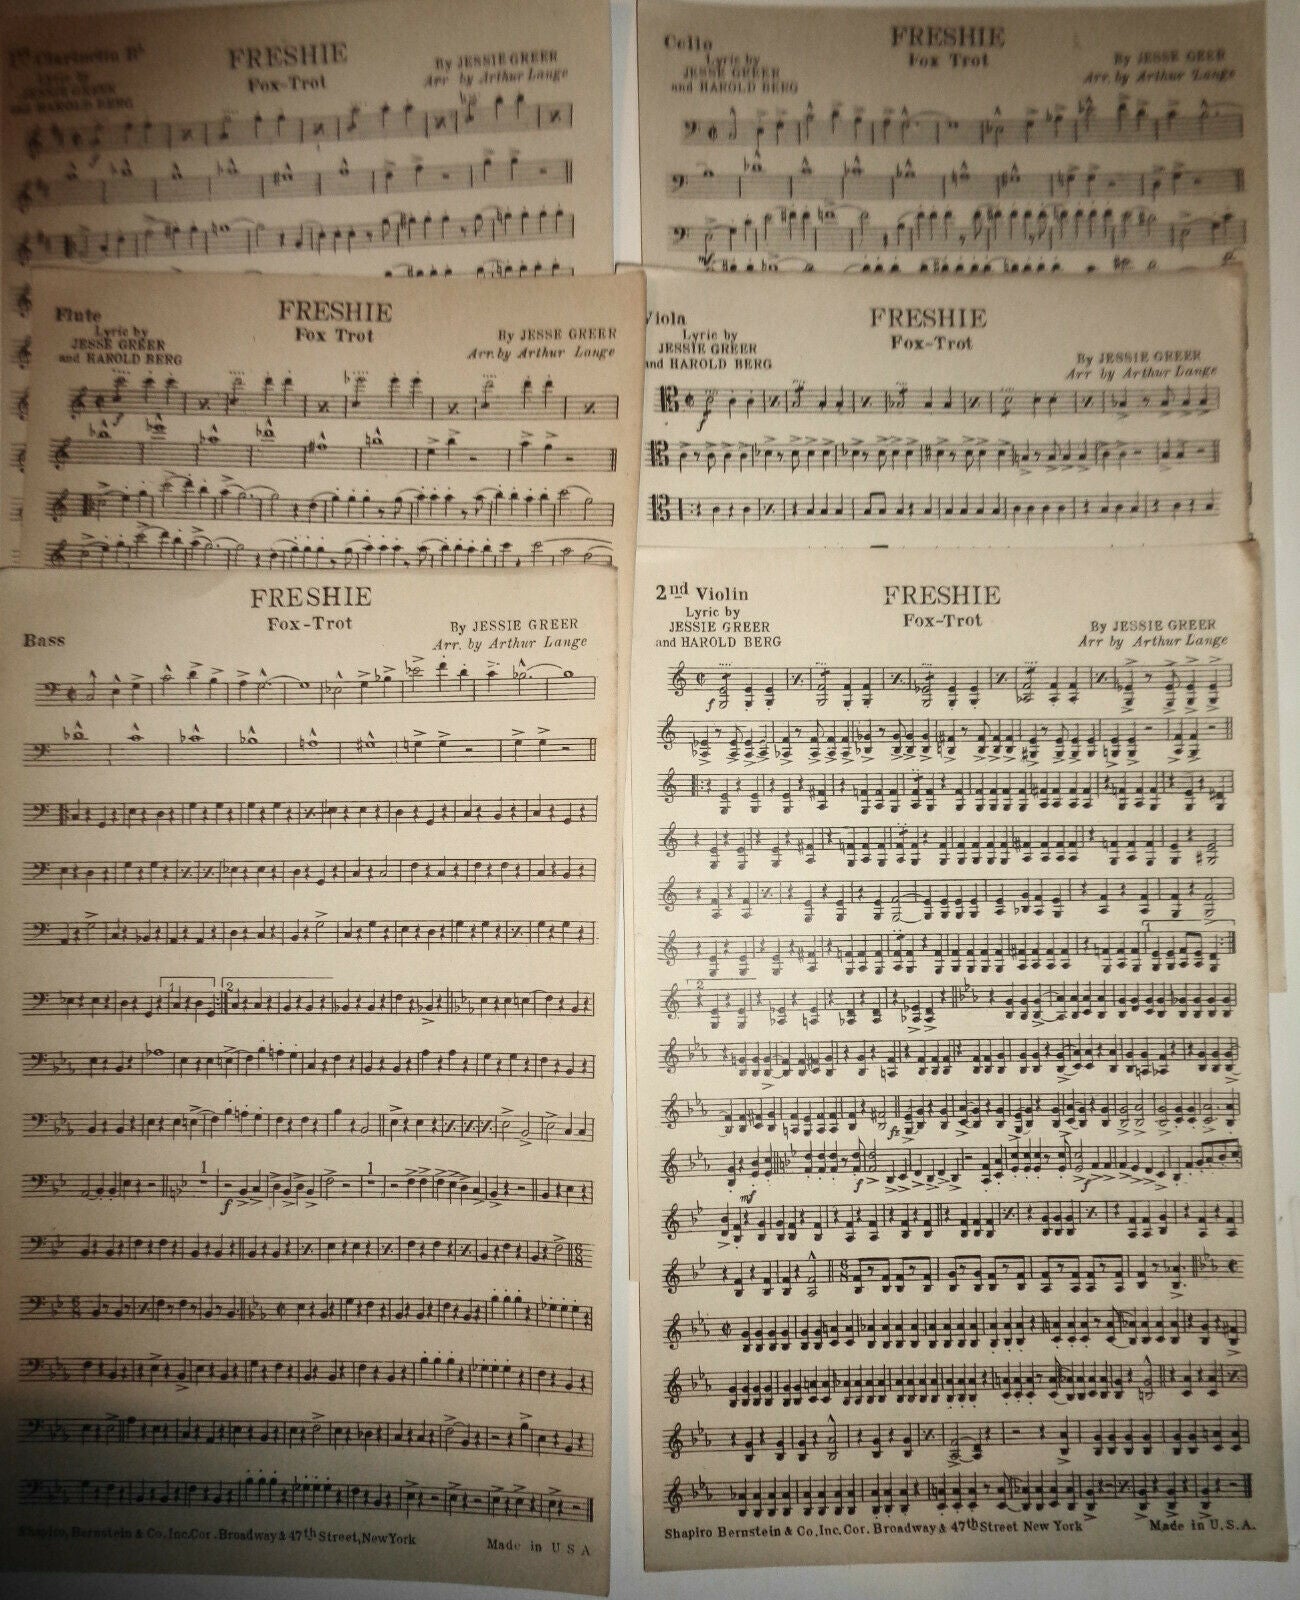 1st Clarinetto Bb
FRESHIE
Fox-Trot
Lyric by
JESSIE GREER
and HAROLD BERG
By JESSIE GREER
Arr by Arthur Lange
Cello
FRESHIE
Fox Trot
Lyric by
JESSIE GREER
and HAROLD BERG
By JESSE GEER
Arr. by Arthur Lange
mf
Flute
FRESHIE
Fox Trot
Lyric by
JESSE GREER
and HAROLD BERG
By JESSE GREER
Arr. by Arthur Lange
f
Viola
FRESHIE
Fox-Trot
Lyric by
JESSIE GREER
and HAROLD BERG
By JESSIE GREER
Arr by Arthur Lange
Bass
FRESHIE
Fox-Trot
By JESSIE GREER
Arr. by Arthur Lange
1 2
1 1
f
6/8
Shapiro, Bernstein & Co, Inc. Cor. Broadway & 47th Street, New York
Made in U S A
2nd Violin
FRESHIE
Fox-Trot
Lyric by
JESSIE GREER
and HAROLD BERG
By JESSIE GREER
Arr by Arthur Lange
f
1
2
mf f
6/8
Shapiro Bernstein & Co, Inc. Cor. Broadway & 47th Street New York
Made in U.S.A.